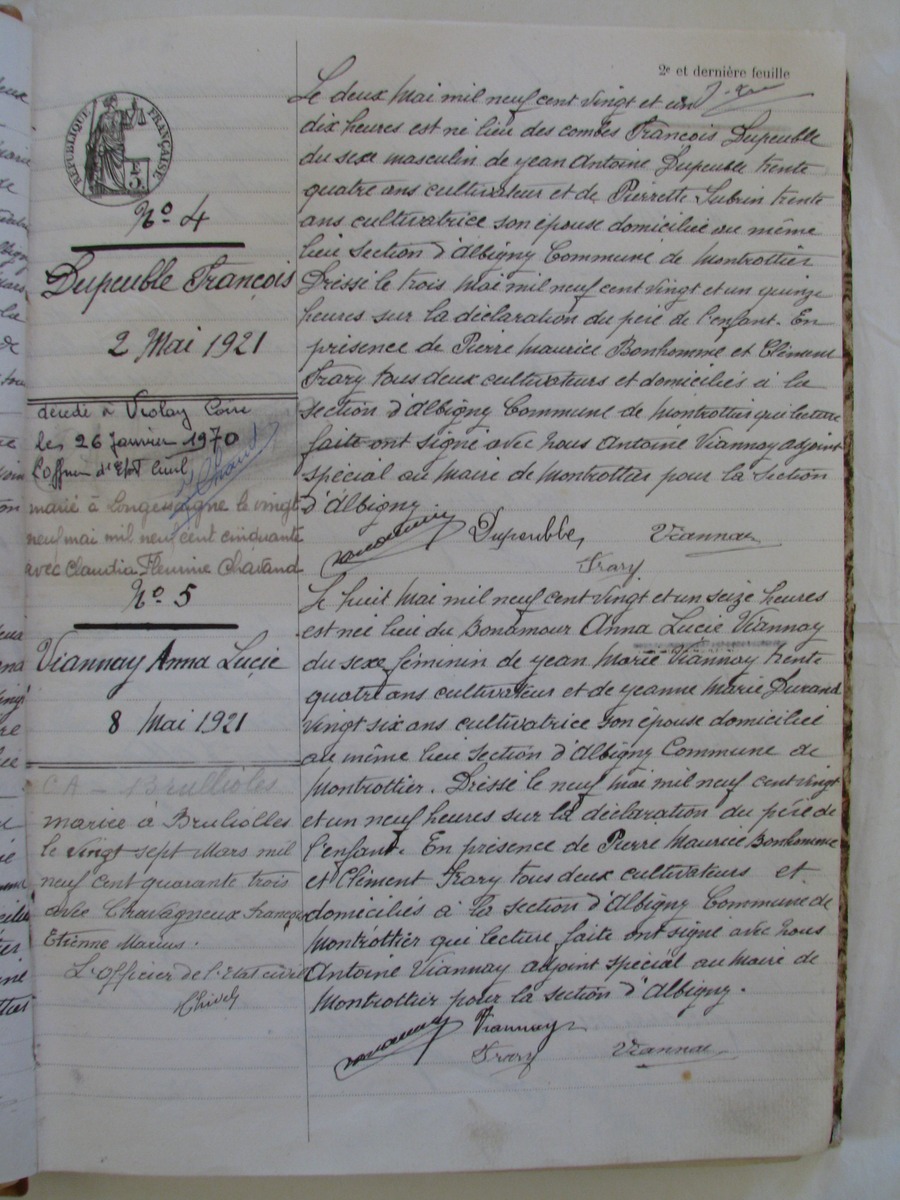 2e et dernière feuille
RÉPUBLIQUE FRANÇAISE
No 4
Dupeuble François
2 Mai 1921
décédé à Violay Loire
le 26 janvier 1970
L'officier d'Etat Civil
marié à Longessaigne le vingt
neuf mai mil neuf cent cinquante
avec Claudia Fleurine Chavand
Le deux Mai mil neuf cent vingt et un
dix heures est né lieu des combes François Dupeuble
du sexe masculin de jean Antoine Dupeuble trente
quatre ans cultivateur et de Pierrette Subrin trente
ans cultivatrice son épouse domicilié au même
lieu section d'Albigny Commune de Montrottier
Dressé le trois Mai mil neuf cent vingt et un quinze
heures sur la déclaration du père de l'enfant. En
présence de Pierre Maurice Bonhomme et Clément
Frary tous deux cultivateurs et domiciliés à la
section d'Albigny Commune de Montrottier qui lecture
faite ont signé avec nous Antoine Viannay adjoint
spécial au maire de Montrottier pour la section
d'Albigny
Dupeuble Viannay
Frary
No 5
Viannay Anna Lucie
8 Mai 1921
CA - Brullioles
mariée à Brullolles
le vingt sept Mars mil
neuf cent quarante trois
avec Chavagneux François
Etienne Marius.
L'Officier de l'etat civil
Le huit Mai mil neuf cent vingt et un seize heures
est née lieu du Bonamour Anna Lucie Viannay
du sexe féminin de jean Marie Viannay trente
quatre ans cultivateur et de jeanne Marie Durand
vingt six ans cultivatrice son épouse domicilié
au même lieu section d'Albigny Commune de
Montrottier. Dressé le neuf Mai mil neuf cent vingt
et un neuf heures sur la déclaration du père de
l'enfant. En présence de Pierre Maurice Bonhomme
et Clément Frary tous deux cultivateurs et
domiciliés à la section d'Albigny Commune de
Montrottier qui lecture faite ont signé avec nous
Antoine Viannay adjoint spécial au Maire de
Montrottier pour la section d'Albigny.
Viannay
Frary Viannay